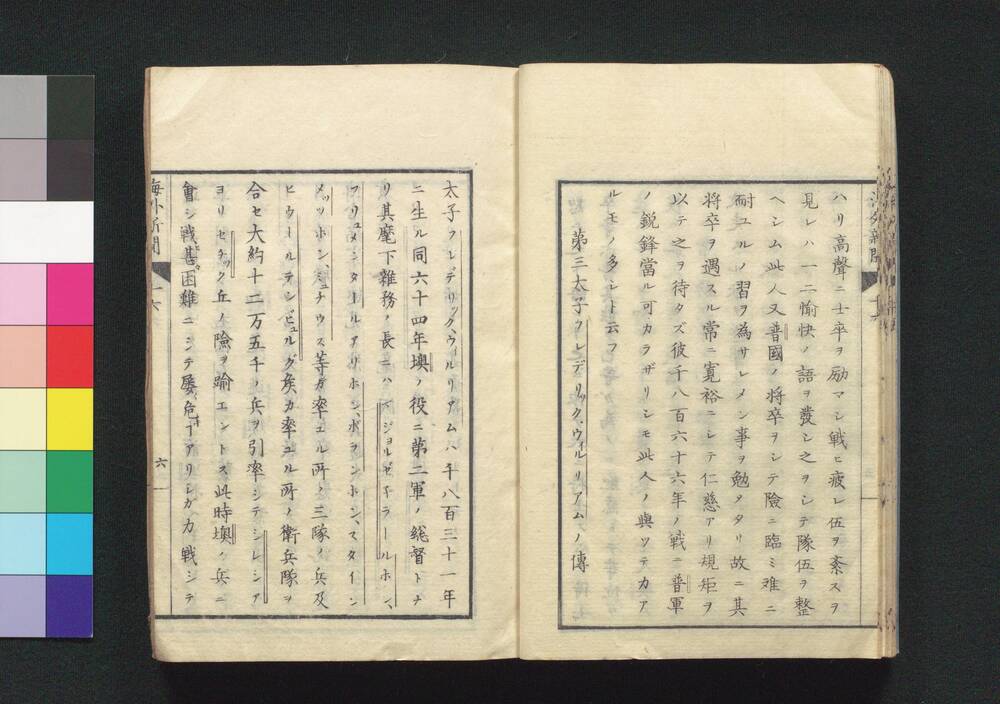 ハリ高聲ニ士卒ヲ励マシ戦ヒ疲レ伍ヲ紊スヲ
見レハ一二愉快ノ語ヲ發シ之ヲシテ隊伍ヲ整
ヘシム此人又普國ノ将卒ヲシテ險ニ臨ミ难ニ
耐ユルノ習ヲ為サシメン事ヲ勉タリ故ニ其
将卒ヲ遇スル常ニ寛裕ニシテ仁慈アリ規矩ヲ
以テ之ヲ待タズ彼千八百六十六年ノ戦ニ普軍
ノ鋭鋒當ル可カラザリシモ此人ノ與ツテカア
ルモノ多シト云フ
第三太子フレデリック、ウィルリアムノ傳
太子フレデリック、ウィルリアムハ千八百三十一年
ニ生ル同六十四年墺ノ役ニ第二軍ノ総督トナ
リ其麾下雜務ノ長ニハ
フリュメンタール
メッツ
ヒウールテンビュルグ矦カ率ユル所ノ衛兵隊ヲ
合セ大約十二万五千ノ兵ヲ引率シテシレシア
ヨリセチック丘ノ險ヲ踰エントス此時墺ノ兵ニ
會シ戦甚困難ニシテ屡危フアリシガ力戦シテ
海外新聞
六